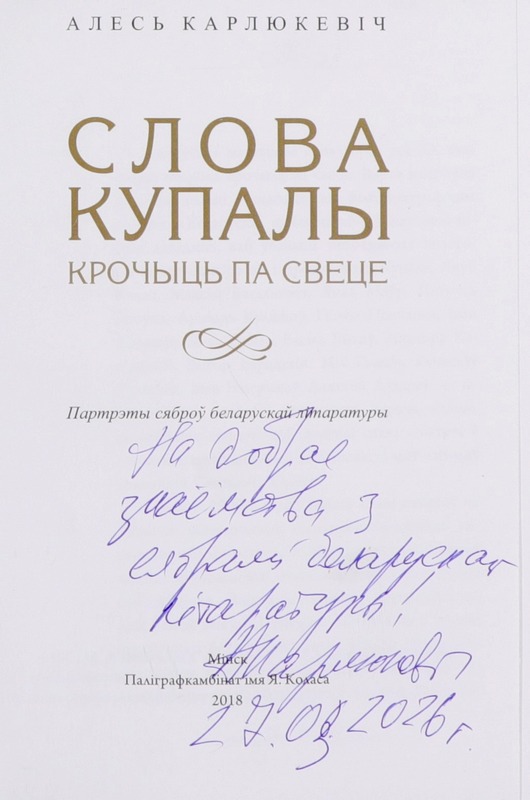 АЛЕСЬ КАРЛЮКЕВІЧ
СЛОВА
КУПАЛЫ
КРОЧЫЦЬ ПА СВЕЦЕ
Партрэты сяброў беларускай літаратуры
На добрае
знаёмства з
сябрамі беларускай
літаратуры!
Мінск
Паліграфкамбінат імя Я. Коласа
2018
27.03.2026 г.